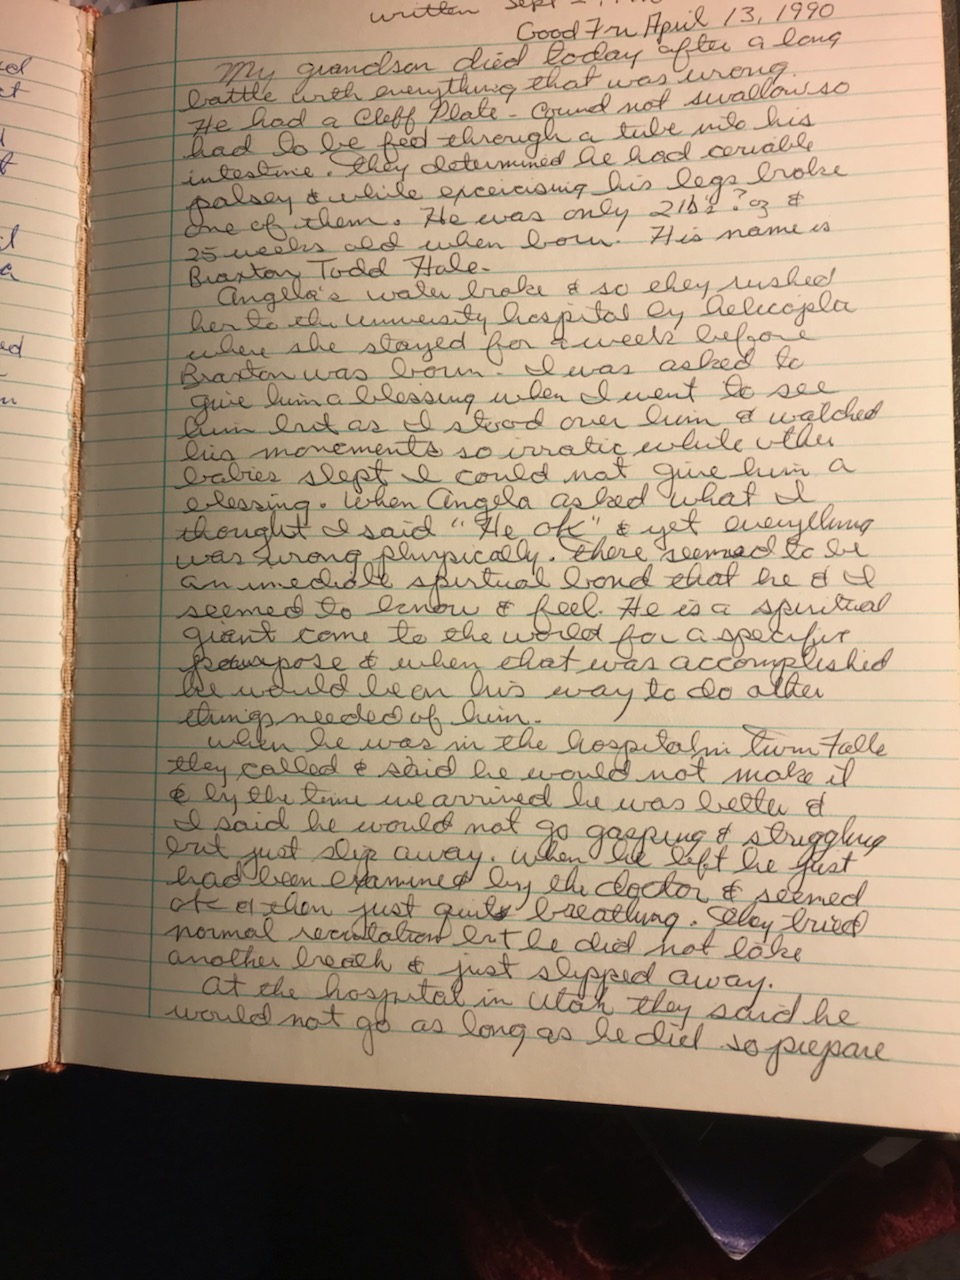 written Sept
Good Fri April 13, 1990
My grandson died today after a long
battle with everything that was wrong.
He had a Cleff Plate - Cound not swallow so
had to be feed through a tube into his
intestine. They determined he had cerieble
palsey & while exceicising his legs broke
one of them. He was only 2lb's ? oz &
25 weeks old when born. His name is
Braxton Todd Hale.
Angela's water broke & so they rushed
her to the University hospital by helicopter
where she stayed for a week before
Braxton was born. I was asked to
give him a blessing when I went to see
him but as I stood over him & watched
his monements so irratic while other
babies slept I could not give him a
blessing. When Angela asked what I
thought I said "He ok" & yet everything
was wrong physically. There seemed to be
an imediate spirtual bond that he & I
seemed to know & feel. He is a spiritual
giant come to the world for a specific
purpose & when that was accomplished
he would be on his way to do other
things needed of him.
When he was in the hospital in Twin Falls
they called & said he would not make it
& by the time we arrived he was better &
I said he would not go gasping & struggling
but just slip away. When he left he just
had been examined by the doctor & seemed
ok & then just quit breathing. They tried
normal but he did not take
another breath & just slipped away.
At the hospital in Utah they said he
would not go as long as he did so prepare